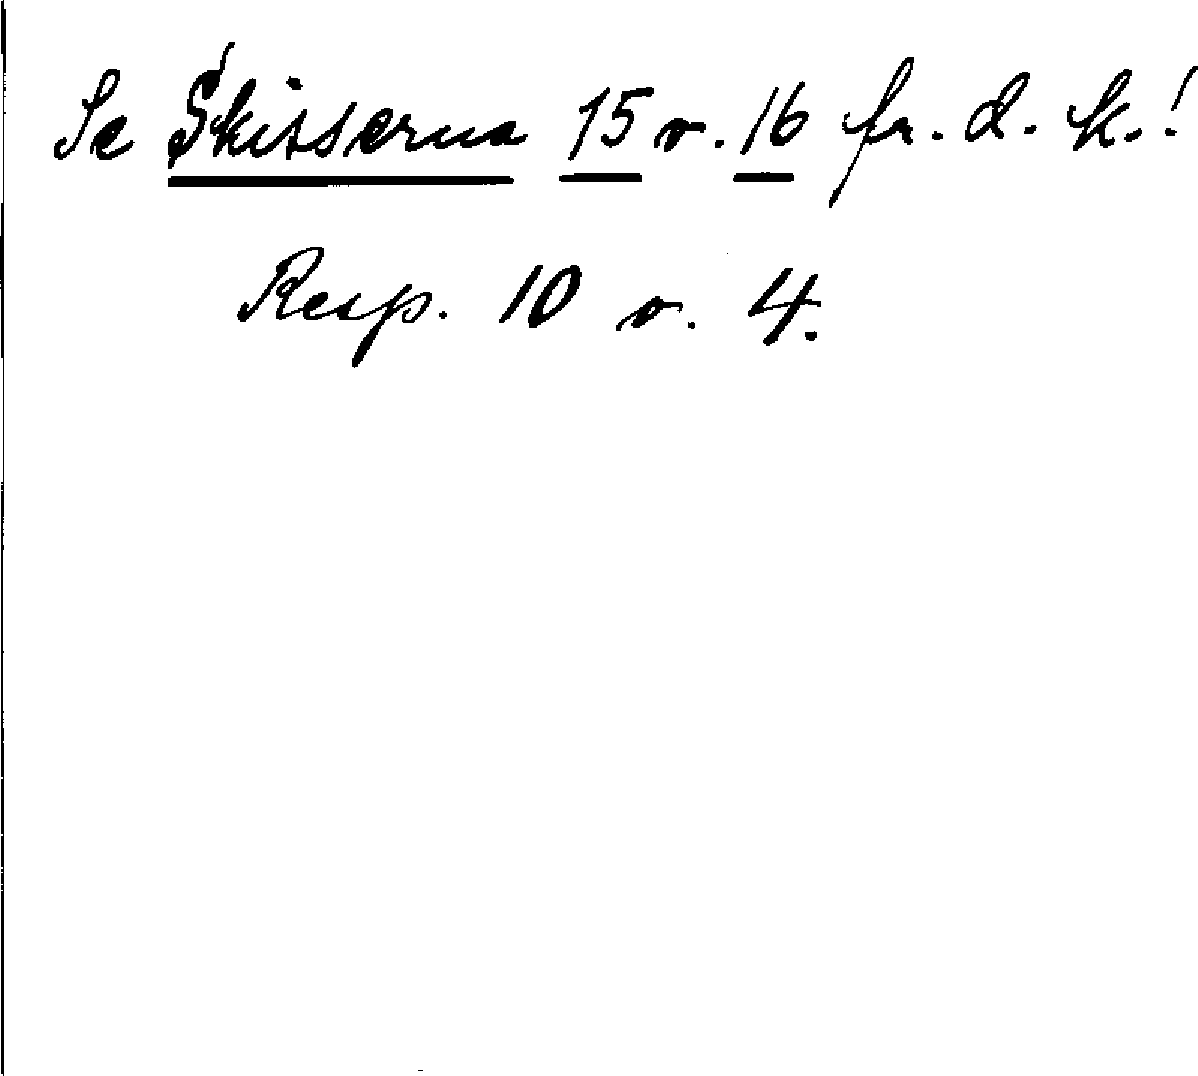 Se Skisserna 15 o. 16 fr. d. k.!
Resp. 10 o. 4.